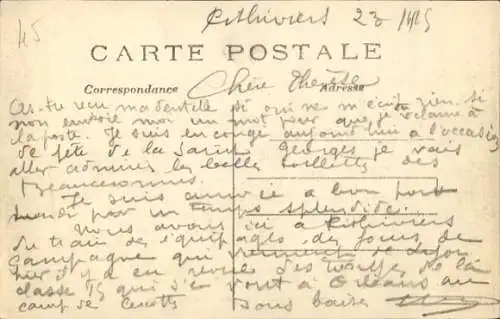 45
Pithiviers 23 1915
CARTE POSTALE
Correspondance
Adresse
Chère Thérèse
As-tu reçu ma dentelle si oui ne m'écrit rien. Si
non envoie moi un mot pour que je réclame à
la poste. Je suis en congé aujourd'hui à l'occasion
de fête de la Saint Georges je vais
aller admirer les belles toilettes des
Beauceronnes.
Je suis arrivée à bon port
par un temps splendide.
Nous avons ici à Pithiviers
du train des équipages des jours de
campagne qui viennent de Lyon
hier il y a eu revue des troupes de la
classe 15 qui s'en vont à Orléans au
camp de Cercottes
bons baisers